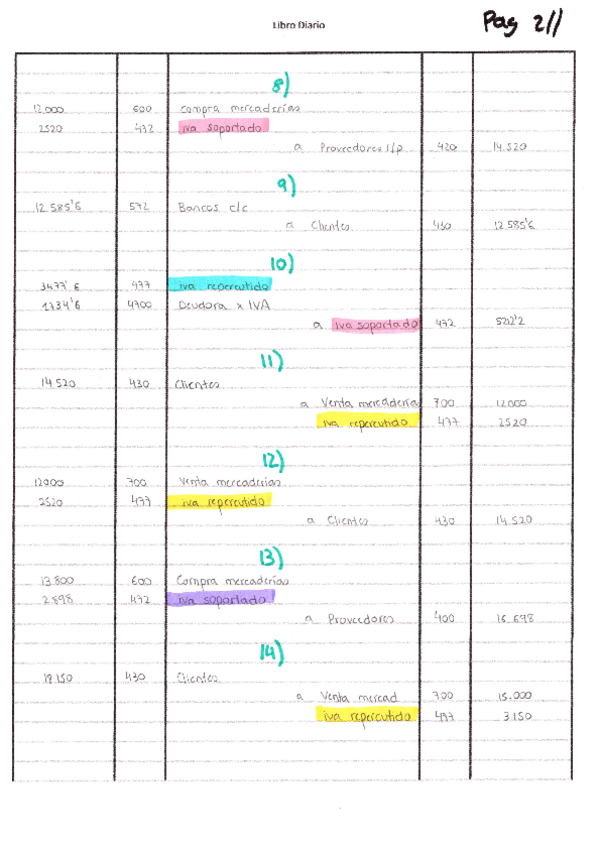 Libro Diario
Pag 2//
8)
12.000 600 compra mercaderías
2520 472 iva soportado
a Proveedores l/p 420 14.520
9)
12.585'6 572 Bancos c/c
a Clientes 430 12.585'6
10)
3477'6 477 iva repercutido
1734'6 4700 Deudora x IVA
a iva soportado 472 5212'2
11)
14.520 430 Clientes
a Venta mercadería 700 12000
iva repercutido 477 2520
12)
12000 700 Venta mercaderías
2520 477 iva repercutido
a Clientes 430 14.520
13)
13.800 600 Compra mercaderías
2.898 472 iva soportado
a Proveedores 400 16.698
14)
18.150 430 Clientes
a Venta mercad 700 15.000
iva repercutido 477 3.150